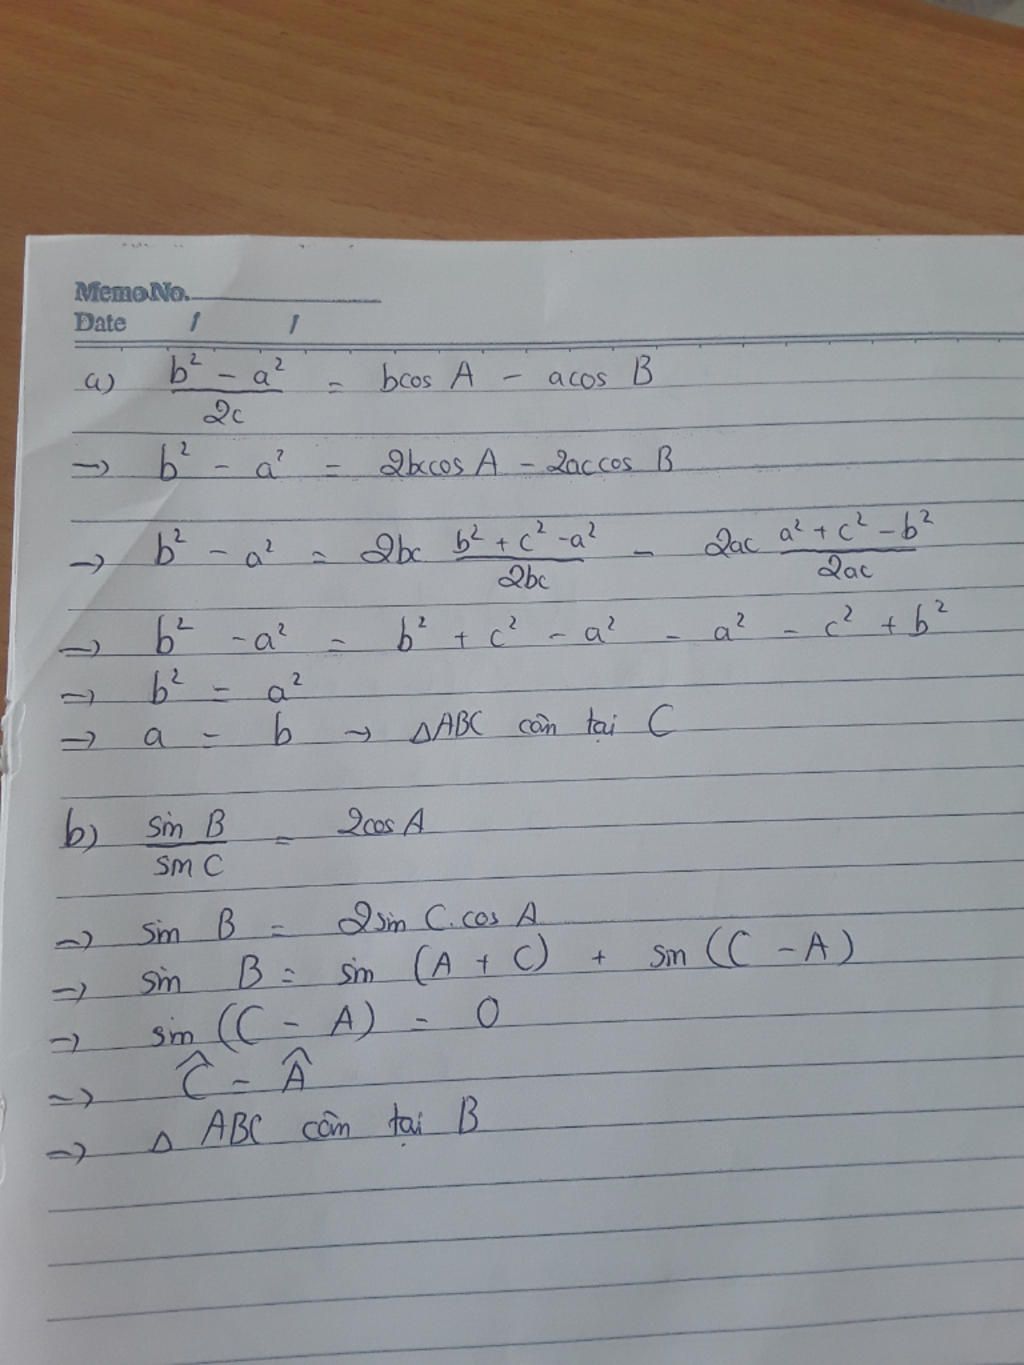 Memo No.
Date / /
a) b² - a² / 2c = bcos A - acos B
=> b² - a² = 2bccos A - 2accos B
=> b² - a² = 2bc b² + c² - a² / 2bc - 2ac a² + c² - b² / 2ac
=> b² - a² = b² + c² - a² - a² - c² + b²
=> b² = a²
=> a = b → △ABC cân tại C
b) sin B / sin C = 2cos A
=> sin B = 2sin C.cos A
=> sin B = sin (A + C) + sin (C - A)
=> sin (C - A) = 0
=> Ĉ = Â
=> △ ABC cân tại B